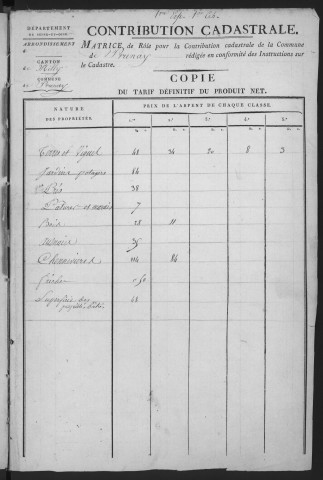 DÉPARTEMENT
DE SEINE-ET-OISE.
ARRONDISSEMENT
d
CANTON
de Milly
COMMUNE
de Prunay
CONTRIBUTION CADASTRALE.
MATRICE, de Rôle pour la Contribution cadastrale de la Commune
de Prunay rédigée en conformité des Instructions sur
le Cadastre.
COPIE
DU TARIF DÉFINITIF DU PRODUIT NET.
NATURE
DES PROPRIÉTÉS.
PRIX DE L'ARPENT DE CHAQUE CLASSE.
1.re 2.e 3.e 4.e 5.e
Terres et Vignes 48 34 20 8 3
Jardins potagers 84
Prés 38
Patures et marais 7
Bois 28 11
35
Chennevieres 114 84
Friches
Superficie des
propriétés bâties 48